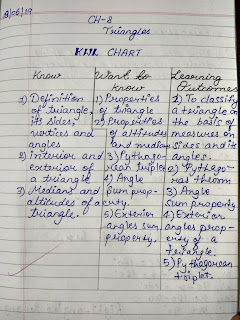 8/06/19
CH-8
Triangles
KWL CHART
Know
1) Definition
of triangle,
its sides,
vertices and
angles
2) Interior and
exterior of
a triangle
3) Medians and
altitudes of a
triangle.
Want to
know
1) Properties
of triangle
2) Properties
of altitudes
and medians
3) Pythago-
rean triplet
4) Angle
sum prop-
erty.
5) Exterior
angles sum
property.
Learning
Outcomes
1) To classify
a triangle on
the basis of
measures on
sides and its
angles.
2) Pythago-
ras theorm
3) Angle
Sum property
4) Exterior
angles prop-
erty of a
triangle.
5) Pythagorean
triplet.